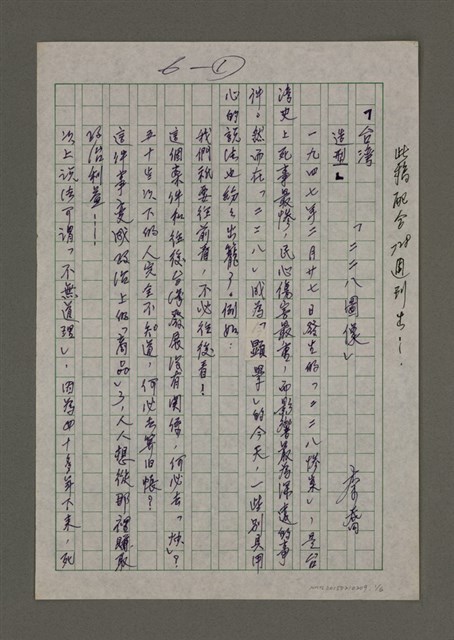 6—①
此稿配合228週刊出！
「台灣造型」
「二二八圖像」
李喬
一九四七年二月廿七日發生的「二二八慘案」，是台
灣史上死事最慘，民心傷害最重，而影響最為深遠的事
件。然而在「二二八」成為「顯學」的今天，一些別具用
心的說法也紛紛出籠了。例如：
我們祇要往前看，不必往後看！
這個案件和往後台灣發展沒有關係，何必去「炒」？
五十年次下的人完全不知道，何必去算旧帳？
這件事變成政治上的「商品」了，人人想從那裡賺取
政治利益！⋯
次上說法可謂「不無道理」，因為四十多年下來，死